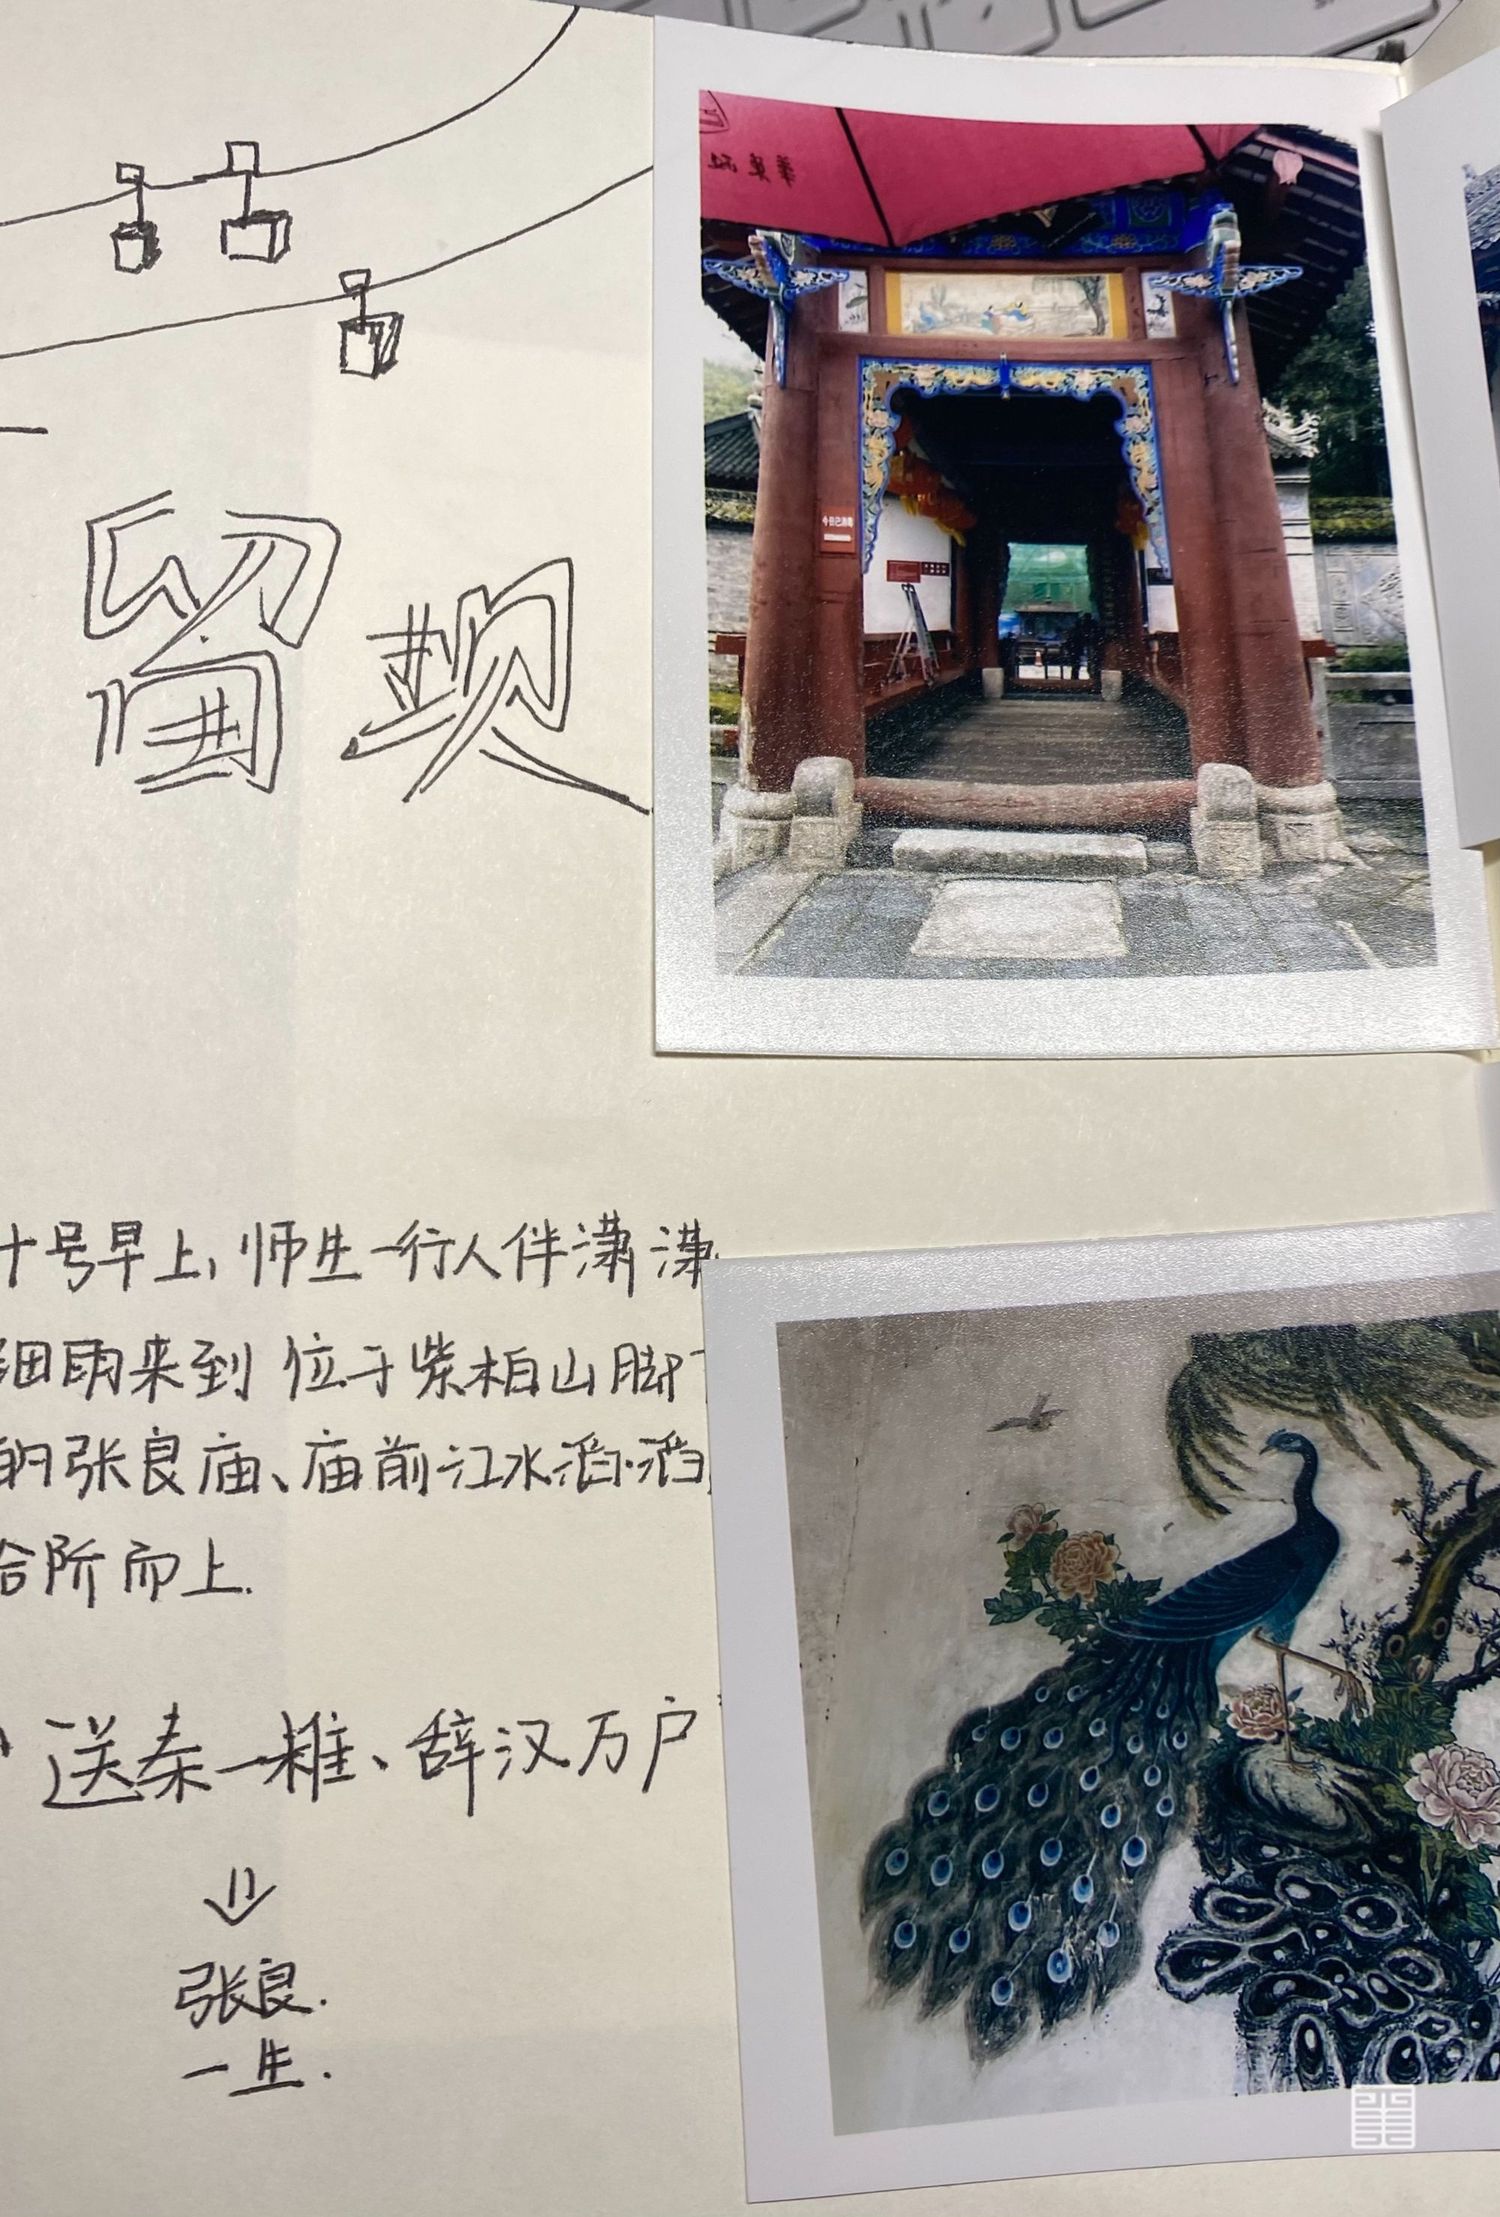 留坝
今日已消毒
十号早上，师生一行人伴潇潇
细雨来到 位于紫柏山脚下
的张良庙、庙前江水滔滔
拾阶而上.
送秦一椎、辞汉万户
张良.
一生.